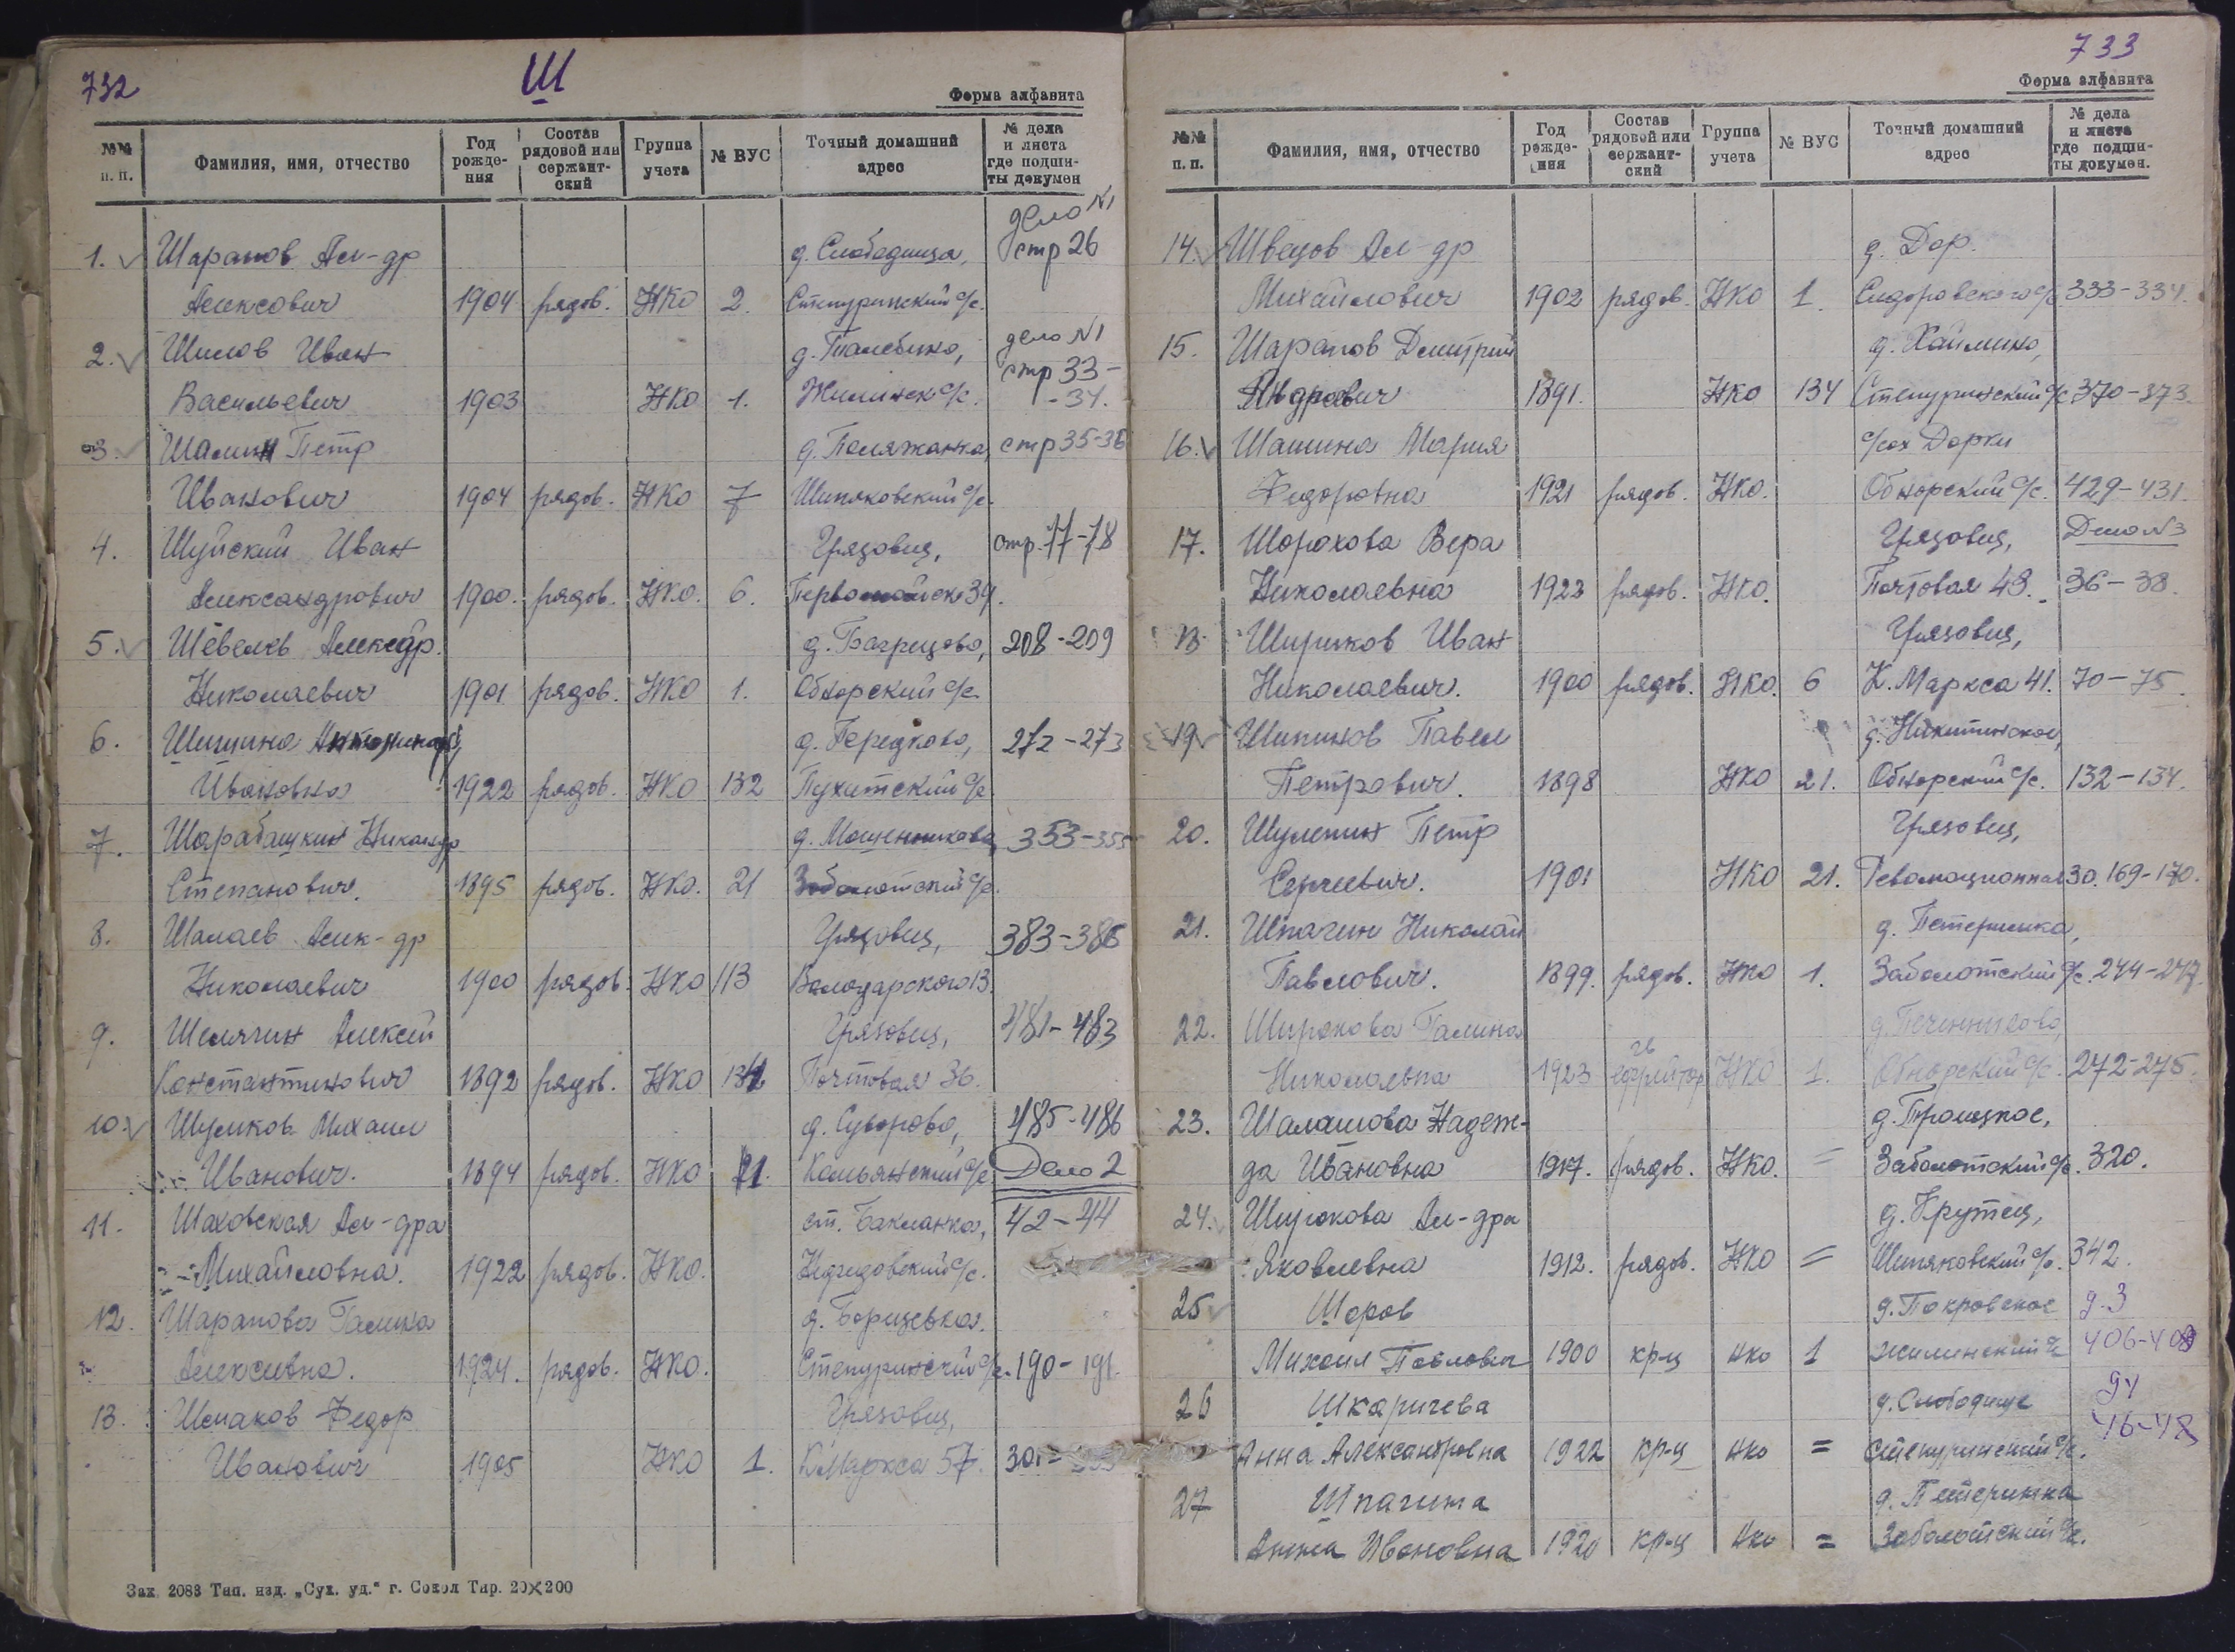 732
Ш
Форма алфавита
№№ п. п. Фамилия, имя, отчество Год рожде- ния Состав рядовой или сержант- ский Группа учета № ВУС Точный домашний адрес № дела и листа где подши- ты докумен
дело №1
1. Шарапов Ал-др д. Слободища, стр 26
Алексович 1904 рядов. НКО 2. Степуринский с/с.
2. Шилов Иван д. Талебино, дело №1
стр 33-
Васильевич 1903 НКО 1. Жилинск с/с. -34.
3. Шалин Петр д. Поляжанка, стр 35-36
Иванович 1904 рядов. НКО 7 Шепяковский с/с.
4. Шуйский Иван Грязовец, стр. 77-78
Александрович 1900. рядов. НКО. 6. Первомайск 39.
5. Шевелев Алексдр. д. Багрецово, 208-209
Николаевич 1901 рядов. НКО 1. Обнорский с/с.
6. Шишина д. Передково, 272-273
Ивановна 1922 рядов. НКО 132 Пухитский с/с
7. Шарабашкин Никандр д. Мошенниково, 353-355
Степанович. 1895 рядов. НКО. 21 Заболотский с/с.
8. Шалаев Алек-др Грязовец, 383-386
Николаевич 1900 рядов. НКО 113 Володарского 13.
9. Шелягин Алексей Грязовец, 481-483
Константинович 1892 рядов. НКО 134 Почтовая 36.
10. Шумков Михаил д. Суворово, 485-486
Иванович. 1894 рядов. НКО 21. Комьянский с/с Дело 2
11. Шаховская Ал-дра ст. Бакланка, 42-44
Михайловна. 1922 рядов. НКО. с/с.
12. Шарапова Галина д. Борщевка.
Алексеевна. 1924. рядов. НКО. Степуринский с/с. 190-191.
13. Шпаков Федор Грязовец,
Иванович 1905 НКО 1. К.Маркса 57.
Зак. 2083 Тип. изд. „Сух. уд.“ г. Сокол Тир. 20×200
733
Форма алфавита
№№ п. п. Фамилия, имя, отчество Год рожде- ния Состав рядовой или сержант- ский Группа учета № ВУС Точный домашний адрес № дела и листа где подши- ты докумен.
14. Швецов Ал-др д. Дор.
Михайлович 1902 рядов. НКО 1. Сидоровского с/с 333-334.
15. Шарапов Дмитрий д. Хаймино,
1891. НКО 134 Степуринский с/с 370-373.
16. Шашина Мария с/ох Дорки
Федоровна 1921 рядов. НКО. Обнорский с/с. 429-431.
17. Шорохова Вера Грязовец, Дело №3
Николаевна 1923 рядов. НКО. Почтовая 48. 36-38.
18. Шириков Иван Грязовец,
Николаевич. 1900 рядов. НКО. 6 К. Маркса 41. 70-75.
19 Шипинов Павел д. Никитинское,
Петрович. 1898 НКО 21. Обнорский с/с. 132-134.
20. Шулепин Петр Грязовец,
Сергеевич. 1901 НКО 21. Революционная 30. 169-170.
21. Шпагин Николай д. Петеринка,
Павлович. 1899. рядов. НКО 1. Заболотский с/с. 244-247.
22. Широкова Галина
Николаевна 1923 гв ефрейтор НКО 1. Обнорский с/с. 272-275.
23. Шалашова Надеж- д. Троицкое,
да Ивановна 1917. рядов. НКО. = Заболотский с/с. 320.
24. Широкова Ал-дра д. Крутец,
Яковлевна 1912. рядов. НКО = Шепяковский с/с. 342.
25 Шоров д. Покровское д. 3
Михаил Павлович 1900 кр-ц нко 1 Жилинский с/с 406-408
26 Шкаричева д. Слободище д4
Анна Александровна 1922 кр-ц нко = Степуринский с/с. 46-48
27 Шпагина д. Петеринка
Анна Ивановна 1920 кр-ц нко = Заболотский с/с.